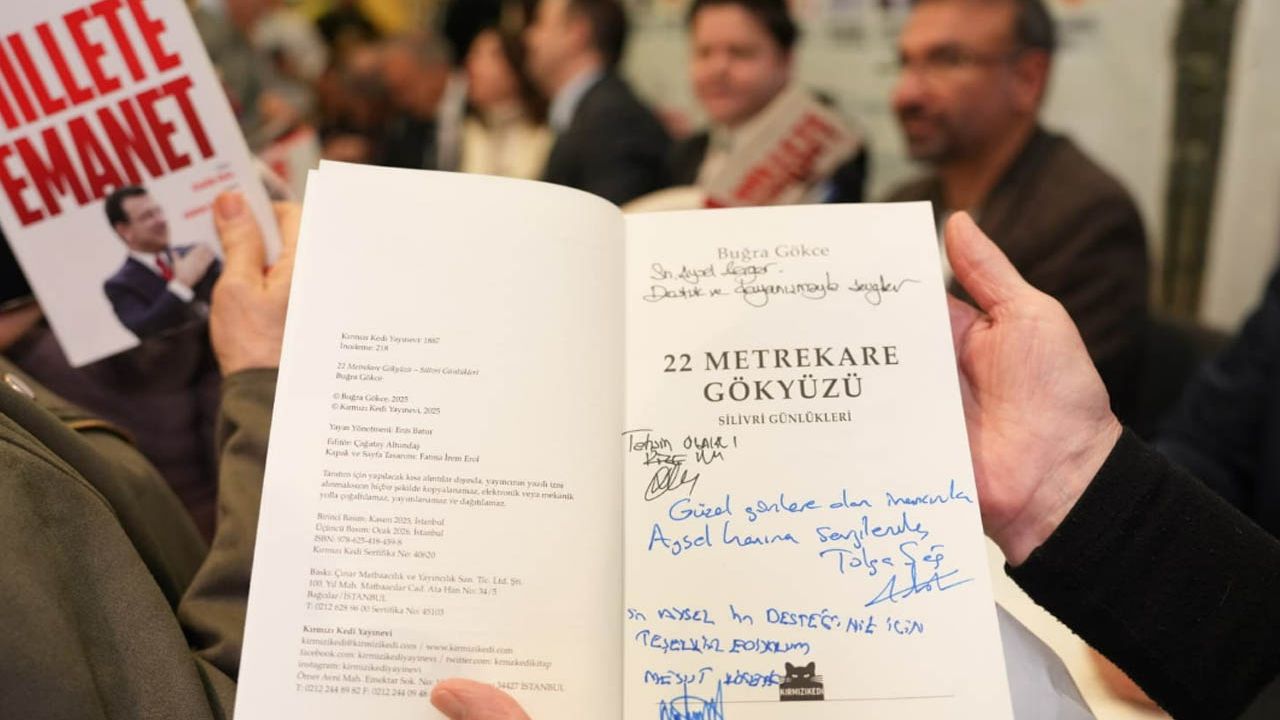 MILLETE
EMANET
Kırmızı Kedi Yayınevi: 1887
İnceleme: 218
22 Metrekare Gökyüzü – Silivri Günlükleri
Buğra Gökce
© Buğra Gökce, 2025
© Kırmızı Kedi Yayınevi, 2025
Yayın Yönetmeni: Enis Batur
Editör: Çağatay Altundaş
Kapak ve Sayfa Tasarımı: Fatma İrem Erol
Tanıtım için yapılacak kısa alıntılar dışında, yayıncının yazılı izni
alınmaksızın hiçbir şekilde kopyalanamaz, elektronik veya mekanik
yolla çoğaltılamaz, yayımlanamaz ve dağıtılamaz.
Birinci Basım: Kasım 2025, İstanbul
Üçüncü Basım: Ocak 2026, İstanbul
ISBN: 978-625-418-459-8
Kırmızı Kedi Sertifika No: 40620
Baskı: Çınar Matbaacılık ve Yayıncılık San. Tic. Ltd. Şti.
100. Yıl Mah. Matbaacılar Cad. Ata Han No: 34/5
Bağcılar/İSTANBUL
T: 0212 628 96 00 Sertifika No: 45103
Kırmızı Kedi Yayınevi
kirmizikedi@kirmizikedi.com / www.kirmizikedi.com
facebook.com: kirmizikediyayinevi / twitter.com: krmzkedikitap
instagram: kirmizikediyayinevi
Ömer Avni Mah. Emektar Sok. No: 34427 İSTANBUL
T: 0212 244 89 82 F: 0212 244 09 48
Buğra Gökce
Sn. Aysel
Destek ve dayanışmayla sevgiler
22 METREKARE
GÖKYÜZÜ
SİLİVRİ GÜNLÜKLERİ
Tahsin
Güzel günlere olan inancımla
Aysel hanıma sevgilerimle
Tolga
Sn AYSEL hn DESTEĞİNİZ İÇİN
TEŞEKKÜR EDİYORUM
MESUT
KIRMIZIKEDİ